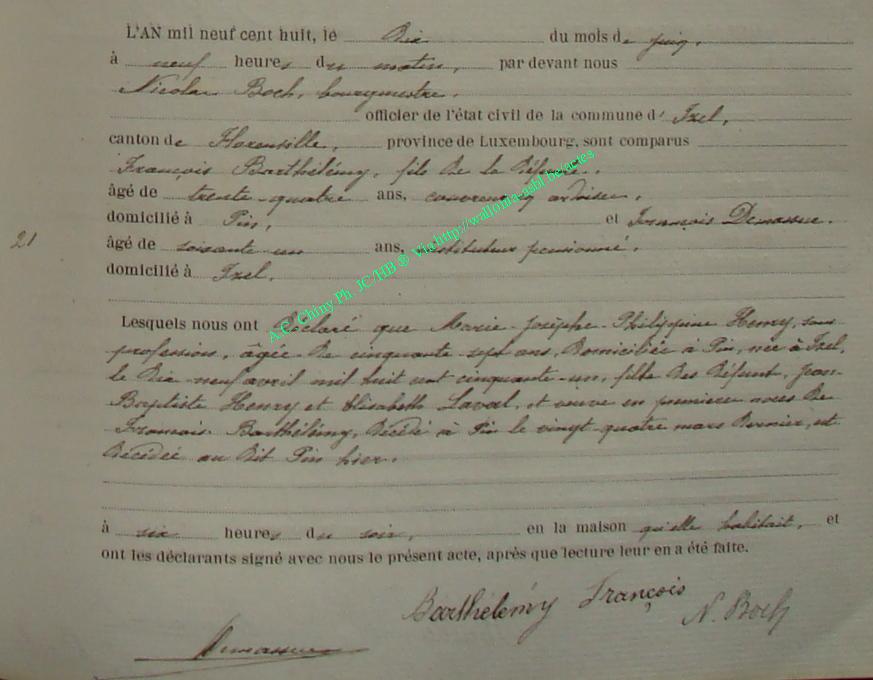 L'AN mil neuf cent huit, le dix du mois de juin,
à neuf heures du matin, par devant nous
Nicolas Boch, bourgmestre,
officier de l'état civil de la commune d' Izel,
canton de Florenville, province de Luxembourg, sont comparus
François Barthélémy, fils de la défunte,
âgé de trente-quatre ans, couvreur en ardoises,
domicilié à Pin, et François Demasue.
21
âgé de soixante un ans, instituteur pensionné,
domicilié à Izel,
A.C. Chiny Ph. JC/HB ® Via http://wallonia-asbl.be/actes
Lesquels nous ont déclaré que Marie-Josèphe-Philippine Henry, sans
profession, âgée de cinquante-sept ans, domiciliée à Pin, née à Izel,
le dix-neuf avril mil huit cent cinquante-un, fille des défunts Jean-
Baptiste Henry et Elisabeth Laval, et veuve en premières noces de
François Barthélémy, décédé à Pin le vingt-quatre mars dernier, est
décédée au dit Pin hier.
à six heures du soir, en la maison qu'elle habitait, et
ont les déclarants signé avec nous le présent acte, après que lecture leur en a été faite.
Barthélémy François
N. Boch